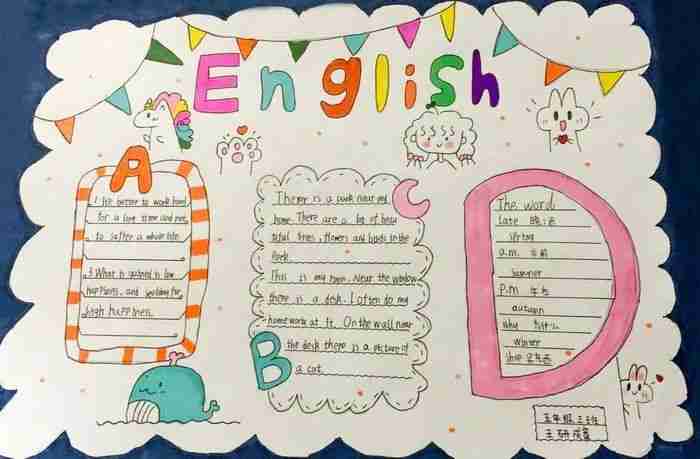 English
A
1 It's better to work hard
for a long time and not
to suffer a whole life.
3 What is gained is low
happiness, and
high happiness.
C
There is a park near my
home. There are a lot of beau
tiful trees, flowers and birds in the
Park.
This is my room. Near the window
there is a desk. I often do my
homework at it. On the wall near
B
the desk there is a picture of
a cat.
D
The word
late 晚;迟
spring
a.m. 上午
summer
P.m 下午
autumn
why 为什么
winter
shop
五年级三班
王研